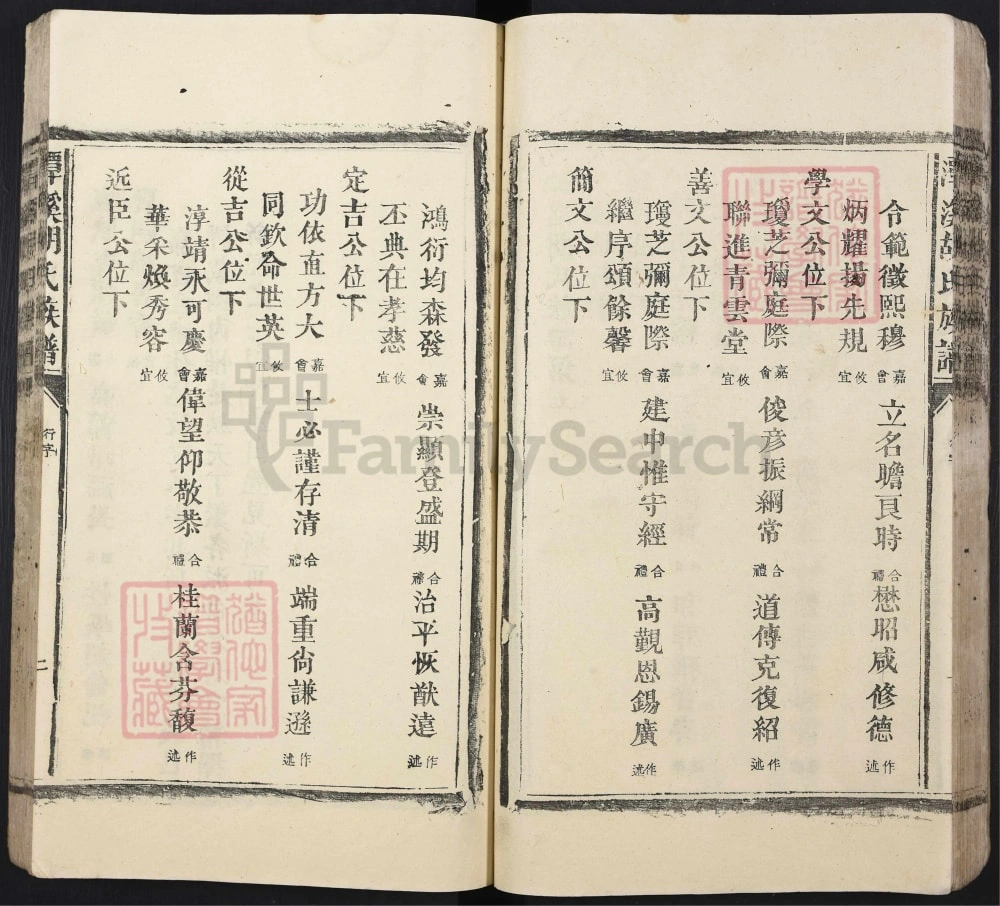 令範徵熙穆 嘉會 立名瞻良時 合禮 懋昭咸修德 作述
炳耀揚先規 攸宜
學文公位下
瓊芝彌庭際 嘉會 俊彥振綱常 合禮 道傳克復紹 作述
聯進青雲堂 攸宜
善文公位下
瓊芝彌庭際 嘉會 建中惟守經 合禮 高觀恩錫廣 作述
繼序頌餘馨 攸宜
簡文公位下
鴻衍均森發 嘉會 崇顯登盛期 合禮 治平恢猷遠 作述
丕典在孝慈 攸宜
定吉公位下
功依直方大 嘉會 士必謹存清 合禮 端重尙謙遜 作述
同欽命世英 攸宜
從吉公位下
淳靖永可慶 嘉會 偉望仰敬恭 合禮 桂蘭含芬馥 作述
華采煥秀容 攸宜
近臣公位下
潭溪胡氏族譜
行字
二
FamilySearch